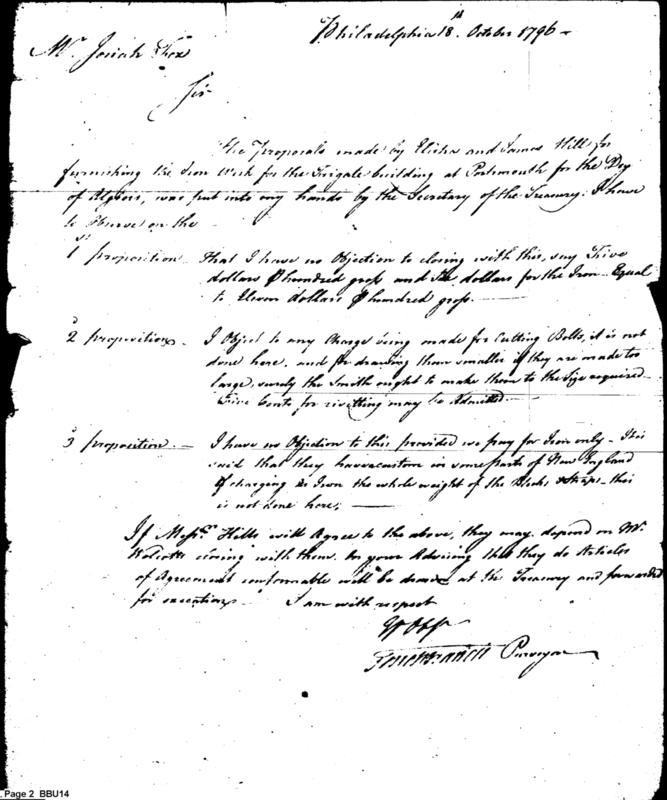 Philadelphia 18th. October 1796 -
Mr. Josiah Fox
Sir
The Proposals made by Elisha and James Hill for
furnishing the Iron Work for the Frigate building at Portsmouth for the Dey
of Algiers, was put into my hands by the Secretary of the Treasury: I have
to Observe on the
1st proposition - That I have no Objection to closing with this, say Five
dollars P hundred gross and Six dollars for the Iron - Equal
to Eleven dollars P hundred gross. -
2d proposition - I Object to any Charge being made for Cutting Bolts, it is not
done here, and for drawing them smaller if they are made too
large, surely the Smith ought to make them to the Size required
Five Cents for rivetting may be Admitted. -
3d proposition. - I have no Objection to this provided we pay for Iron only - It is
said that they have a custom in some parts of New England
of charging as Iron the whole weight of the Blocks & Straps - this
is not done here; -
If Messrs. Hills will Agree to the above, they may depend on Mr.
Wolcotts closing with them. On your Advising that they do Articles
of Agreement conformable will be drawn at the Treasury and forwarded
for execution I am with respect
Tench Francis Purveyor
Page 2 BBU14